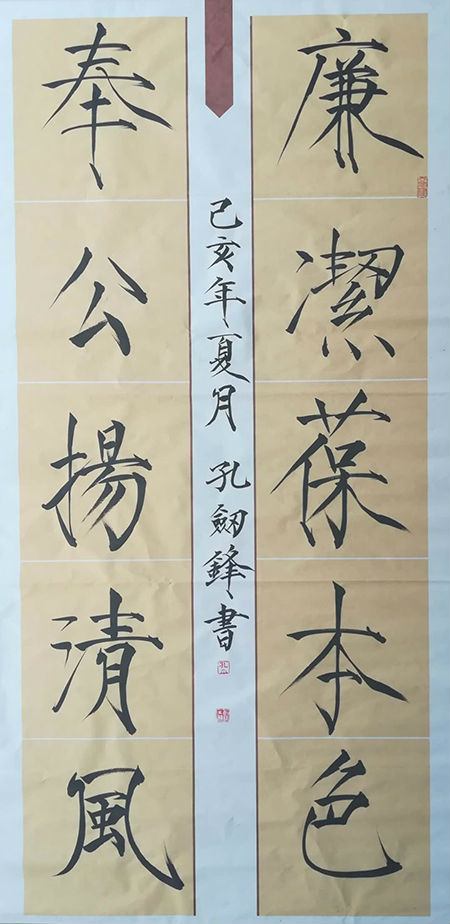 廉潔葆本色
奉公揚清風
己亥年夏月 孔劒鋒書